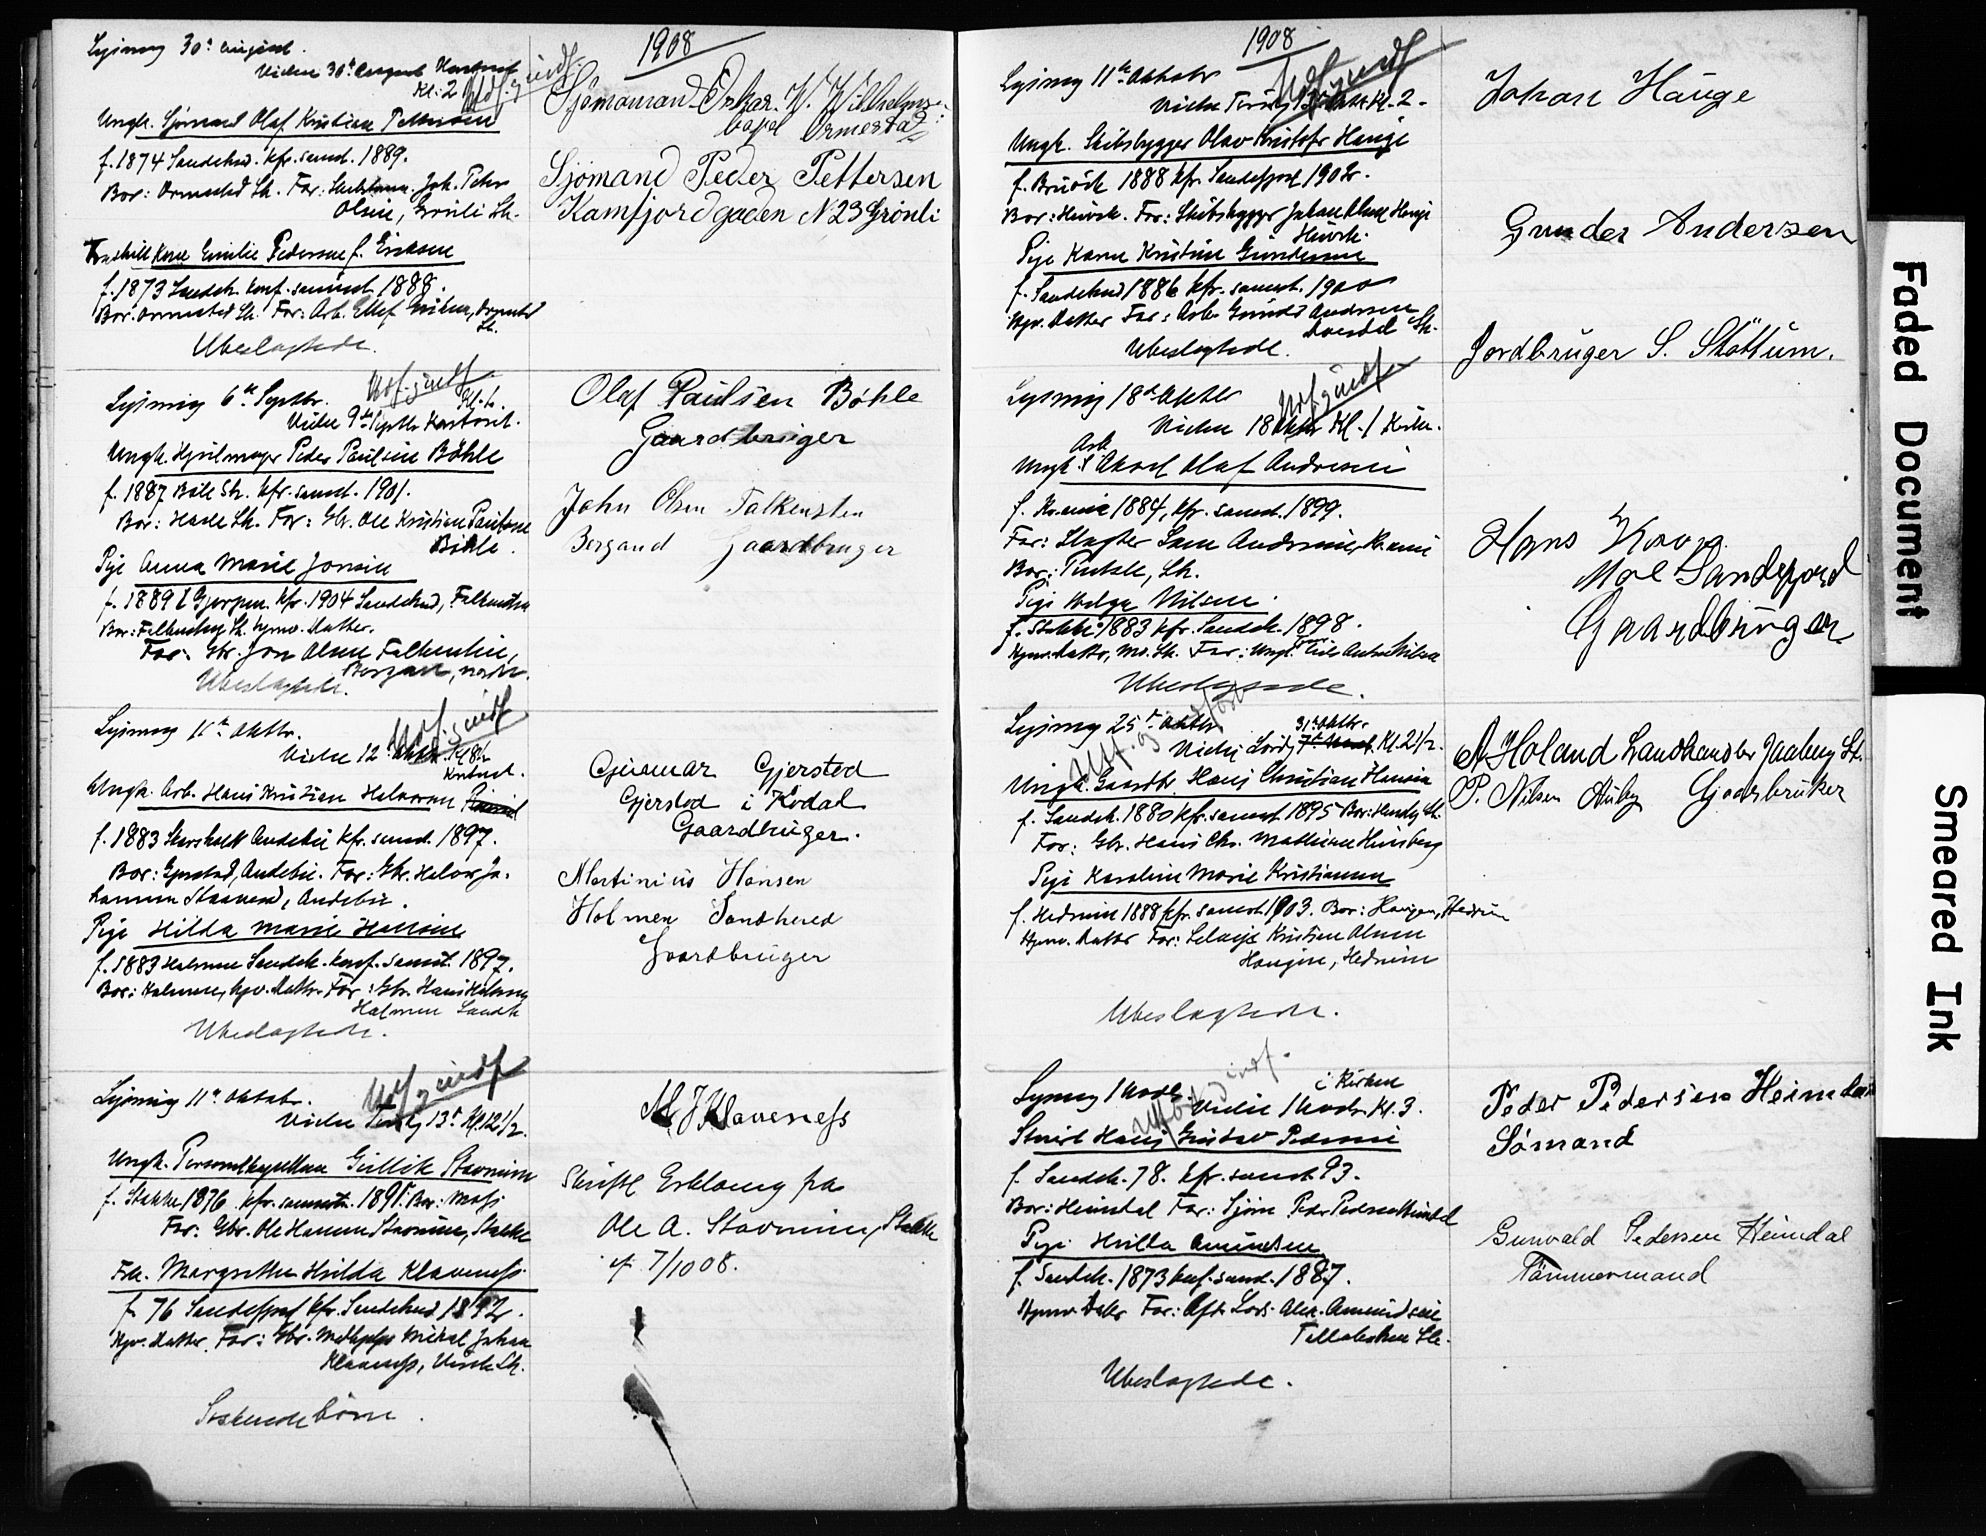 1908
Lysning 30te august.
Vielse 30te august Kontoret
Kl. 2
Utf. g. indf.
Ungk. Sjømand Olaf Kristian Pettersen
f. 1874 Sandehrd. kfr. samst. 1889.
Bor: Ormestad Sh. Far: Joh. Peter
Olsen, Grønli Sh.
Fraskilt Kone Emilie Pedersen f. Eriksen
f. 1873 Sandeh. konf. samst. 1888.
Bor: Ormestad Sh. Far: Arb. Ellef Eriksen, Ormestad
Sh.
Ubeslægtede.
Sjømamand Oskar. W. Wilhelmsen
Ormestad
Sjömand Peder Pettersen
Kamfjordgaden N 23 Grönli
Lysning 6te Septbr.
Utf. g. indf.
Vielse 9de Septbr Kontoret.
Ungk. Peder Paulsen Bøhle
f. 1887 Bøle Sh. kfr. samst. 1901.
Bor: Hasle Sh. Far: Gbr. Ole Kristian Paulsen
Bøhle.
Pige Anna Marie Jonsen
f. 1889 i Gjerpen. kfr. 1904 Sandehrd, Falkensten
Bor: Falkensten Sh. hjmv. datter.
Far: Gbr. Jon Olsen Falkensten,
Bergan, nordre.
Ubeslægtede.
Olaf Paulsen Böhle
Gaardbruger
John Olsen Falkensten
Bergand Gaardbruger
Lysning 11te Oktbr.
Utf. g. indf
Vielse 12 Oktbr. Kl. 8½
Kontoret.
Ungk. Arb. Hans Kristian Halvorsen
f. 1883 Andebu kfr. samst. 1897.
Bor: Gjerstad, Andebu. Far: Gbr. Halvor Jo-
hannesen Staavand, Andebu.
Pige Hilda Marie Hansen
f. 1883 Holmen Sandeh. konf. samst. 1897.
Bor: Holmen, hjv. datter. Far: Gbr. Hans
Holmen Sandh
Ubeslægtede.
Gunmar Gjerstad
Gjerstad i Kodal
Gaardbruger.
Martinius Hansen
Holmen Sandherred
Gaardbruger
Lysning 11te Oktobr.
Utf. g. indf
Vielse 13de Kl. 12½.
Ungk. Gullik Stavnum
f. Stokke 1876. kfr. samst. 1891. Bor: Moss
Far: Gbr. Ole Hansen Stavnum, Stokke
Frk. Margrethe Hilda Klaveness
f. 76 Sandefjord kfr. Sandehrd 1892.
Hjv. datter. Far: Gbr. Mikal Johan
Klaveness, Sh.
Søskendebørn.
M J Klaveness
Skriftl Erklæring fra
Ole A. Stavnum, Stokke
af 7/10 08.
1908
Lysning 11te Oktobr
Utf. g. indf
Vielse Kl. 2.
Ungk. Skibsbygger Olav Kristofer Hauge
f. Brüvik 1888 kfr. Sandefjord 1902.
Bor: Huvik. Far: Skibsbygger Johan Hauge
Huvik.
Pige Karen Kristine Gundersen
f. Sandehrd 1886 kfr. samst. 1900
Hjv. datter Far: Arb. Gunder Andersen
Sh.
Ubeslægtede.
Johan Hauge
Gunder Andersen
Jordbruger S. Stöttum.
Lysning 18de Oktbr
Utf. g. indf
Vielse 18 Oktbr Kl. 1 Kirken.
Arb
Ungk. Aksel Olaf Andersen
f. 1884, kfr. samst. 1899.
Far: Slagter Andersen,
Bor: Sh.
Pige Helga Nilsen.
f. Stokke 1883 kfr. Sandeh. 1898.
Hjmv. datter, Mo. Sh. Far: Nilsen
Ubeslægtede.
Hans
Moe Sandefjord
Gaardbruger
Lysning 25de Oktbr
Utf. g. indført
31te Oktbr.
Vielse Lørdag Kl. 2½.
Ungk. Gaardbr. Hans Christian Hansen
f. Sandeh. 1880 kfr. samst. 1895 Bor: Sh.
Far: Gbr. Hans Chr. Mathisen
Pige Karoline Marie Kristiansen
f. Hedrum 1888 kfr. samst. 1903. Bor: Haugen, Hedrum
Hjmv. datter Far: Selveier Kristian Olsen
Haugen, Hedrum
Ubeslægtede.
A Holand Landhandler Jaaberg St.
P. Nilsen Auby Gaardbruker
Lysning 1 Novbr.
Utf. g. indf.
i Kirken
Vielse 1 Novbr. Kl. 3.
Hans Gustav Pedersen
f. Sandeh. 78. kfr. samst. 93.
Bor: Heimdal Far: Sjøm Peder Pedersen Heimdal
Pige Hilda Amundsen
f. Sandeh. 1873 konf. samst. 1887.
Hjmv. datter Far: Afd. Lods Alex. Amundsen
Sh.
Ubeslægtede.
Peder Pedersen Heimdal
Sømand
Gunvald Pedersen Heimdal
Tömmermand
Faded Document
Smeared Ink